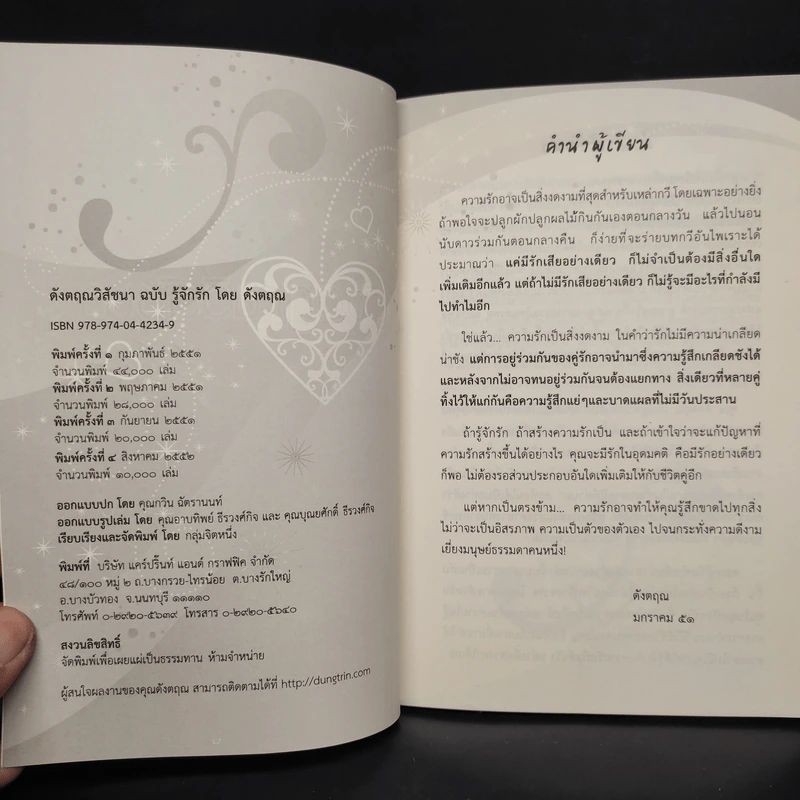 ดังตฤณวิสัชนา ฉบับ รู้จักรัก โดย ดังตฤณ
ISBN 978-974-04-4234-9
พิมพ์ครั้งที่ ๑ กุมภาพันธ์ ๒๕๕๑
จำนวนพิมพ์ ๔๔,๐๐๐ เล่ม
พิมพ์ครั้งที่ ๒ พฤษภาคม ๒๕๕๑
จำนวนพิมพ์ ๒๘,๐๐๐ เล่ม
พิมพ์ครั้งที่ ๓ กันยายน ๒๕๕๑
จำนวนพิมพ์ ๒๐,๐๐๐ เล่ม
พิมพ์ครั้งที่ ๔ สิงหาคม ๒๕๕๒
จำนวนพิมพ์ ๑๐,๐๐๐ เล่ม
ออกแบบปก โดย คุณกวิน ฉัตรานนท์
ออกแบบรูปเล่ม โดย คุณอาบทิพย์ ธีรวงศ์กิจ และ คุณบุณยศักดิ์ ธีรวงศ์กิจ
เรียบเรียงและจัดพิมพ์ โดย กลุ่มจิตหนึ่ง
พิมพ์ที่ บริษัท แคร์ปริ้นท์ แอนด์ กราฟฟิค จำกัด
๔๘/๑๐๐ หมู่ ๒ ถ.บางกรวย-ไทรน้อย ต.บางรักใหญ่
อ.บางบัวทอง จ.นนทบุรี ๑๑๑๑๐
โทรศัพท์ ๐-๒๙๒๐-๕๖๓๙ โทรสาร ๐-๒๙๒๐-๕๖๔๐
สงวนลิขสิทธิ์
จัดพิมพ์เพื่อเผยแผ่เป็นธรรมทาน ห้ามจำหน่าย
ผู้สนใจผลงานของคุณดังตฤณ สามารถติดตามได้ที่ http://dungtrin.com
คำนำผู้เขียน
ความรักอาจเป็นสิ่งงดงามที่สุดสำหรับเหล่ากวี โดยเฉพาะอย่างยิ่ง
ถ้าพอใจจะปลูกผักปลูกผลไม้กินกันเองตอนกลางวัน แล้วไปนอน
นับดาวร่วมกันตอนกลางคืน ก็ง่ายที่จะร่ายบทกวีอันไพเราะได้
ประมาณว่า แค่มีรักเสียอย่างเดียว ก็ไม่จำเป็นต้องมีสิ่งอื่นใด
เพิ่มเติมอีกแล้ว แต่ถ้าไม่มีรักเสียอย่างเดียว ก็ไม่รู้จะมีอะไรที่กำลังมี
ไปทำไมอีก
ใช่แล้ว... ความรักเป็นสิ่งงดงาม ในคำว่ารักไม่มีความน่าเกลียด
น่าชัง แต่การอยู่ร่วมกันของคู่รักอาจนำมาซึ่งความรู้สึกเกลียดชังได้
และหลังจากไม่อาจทนอยู่ร่วมกันจนต้องแยกทาง สิ่งเดียวที่หลายคู่
ทิ้งไว้ให้แก่กันคือความรู้สึกแย่ๆและบาดแผลที่ไม่มีวันประสาน
ถ้ารู้จักรัก ถ้าสร้างความรักเป็น และถ้าเข้าใจว่าจะแก้ปัญหาที่
ความรักสร้างขึ้นได้อย่างไร คุณจะมีรักในอุดมคติ คือมีรักอย่างเดียว
ก็พอ ไม่ต้องรอส่วนประกอบอันใดเพิ่มเติมให้กับชีวิตคู่อีก
แต่หากเป็นตรงข้าม... ความรักอาจทำให้คุณรู้สึกขาดไปทุกสิ่ง
ไม่ว่าจะเป็นอิสรภาพ ความเป็นตัวของตัวเอง ไปจนกระทั่งความดีงาม
เยี่ยงมนุษย์ธรรมดาคนหนึ่ง!
ดังตฤณ
มกราคม ๕๑